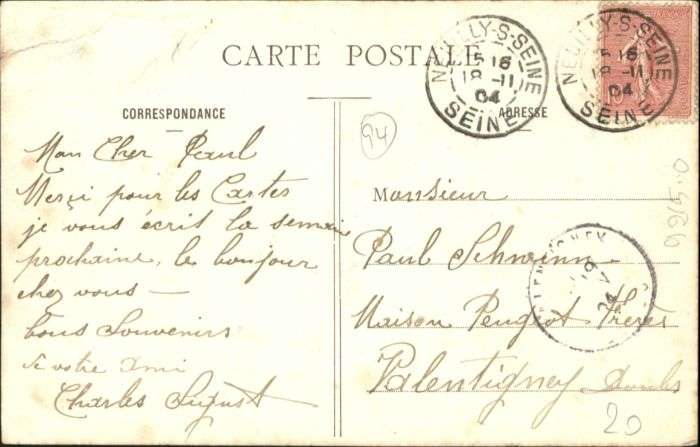 CARTE POSTALE
CORRESPONDANCE
Mon Cher Paul
Merçi pour les Cartes
je vous écrit la semaine
prochaine, le bonjour
chez vous —
bons Souvenirs
de votre Ami
Charles
94
NEUILLY-S-SEINE
5 16
18 -11
04
SEINE
NEUILLY-S-SEINE
5 16
18 -11
04
SEINE
ADRESSE
Monsieur
Paul Schwinn
Maison Peugeot Frères
Valentigney Doubs
20